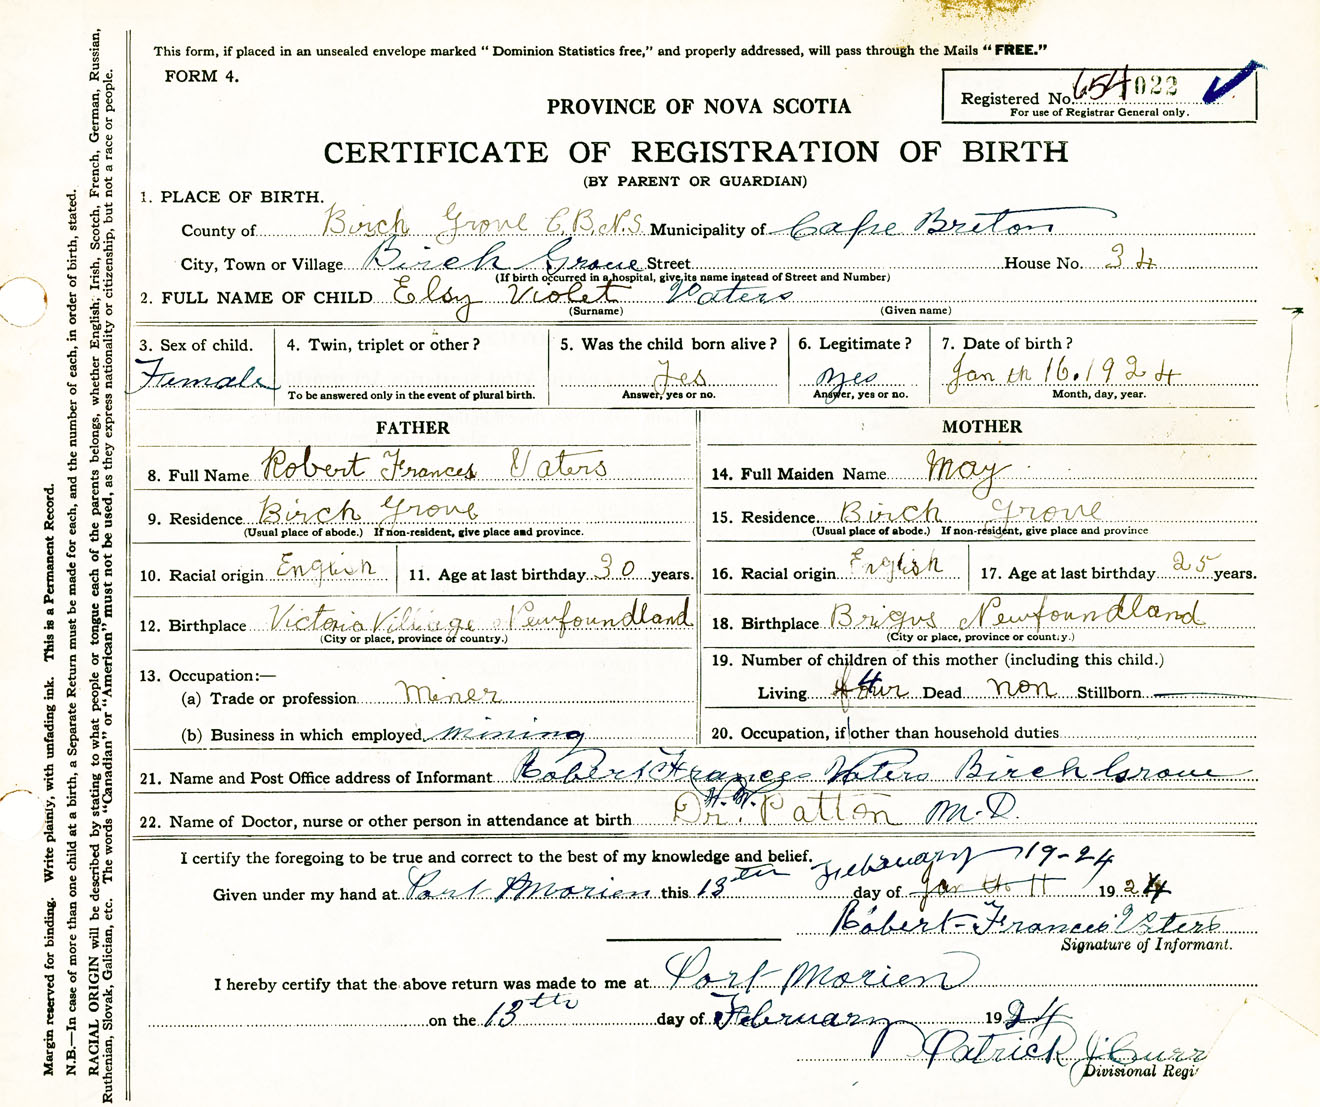 This form, if placed in an unsealed envelope marked “ Dominion Statistics free,” and properly addressed, will pass through the Mails “ FREE.”
FORM 4.
Registered No. 654 022
For use of Registrar General only.
PROVINCE OF NOVA SCOTIA
CERTIFICATE OF REGISTRATION OF BIRTH
(BY PARENT OR GUARDIAN)
1. PLACE OF BIRTH.
County of Birch Grove C.B.N.S. Municipality of Cape Breton
City, Town or Village Birch Grove Street House No. 34
(If birth occurred in a hospital, give its name instead of Street and Number)
2. FULL NAME OF CHILD Elsy Violet Vaters
(Surname) (Given name)
3. Sex of child. 4. Twin, triplet or other ? 5. Was the child born alive ? 6. Legitimate ? 7. Date of birth ?
Female Yes yes Jan th 16. 1924
To be answered only in the event of plural birth. Answer, yes or no. Answer, yes or no. Month, day, year.
FATHER MOTHER
8. Full Name Robert Frances Vaters 14. Full Maiden Name May
9. Residence Birch Grove 15. Residence Birch Grove
(Usual place of abode.) If non-resident, give place and province. (Usual place of abode.) If non-resident, give place and province
10. Racial origin English 11. Age at last birthday 30 years. 16. Racial origin English 17. Age at last birthday 25 years.
12. Birthplace Victoria Village Newfoundland 18. Birthplace Brigus Newfoundland
(City or place, province or country.) (City or place, province or country.)
13. Occupation:— 19. Number of children of this mother (including this child.)
(a) Trade or profession Miner Living four 4 Dead non Stillborn
(b) Business in which employed mining 20. Occupation, if other than household duties
21. Name and Post Office address of Informant Robert Frances Vaters Birch Grove
22. Name of Doctor, nurse or other person in attendance at birth Dr. H. W. Patton M.D.
I certify the foregoing to be true and correct to the best of my knowledge and belief. February 19-24
Given under my hand at Port Morien this 13th day of Jan th 11 1924
Robert Frances Vaters
Signature of Informant.
I hereby certify that the above return was made to me at Port Morien
on the 13th day of February 1924
Patrick J Curr
Divisional Regi
Margin reserved for binding. Write plainly, with unfading ink. This is a Permanent Record.
N.B.—In case of more than one child at a birth, a Separate Return must be made for each, and the number of each, in order of birth, stated.
RACIAL ORIGIN will be described by stating to what people or tongue each of the parents belongs, whether English; Irish, Scotch, French, German, Russian,
Ruthenian, Slovak, Galician, etc. The words “Canadian” or “American” must not be used, as they express nationality or citizenship, but not a race or people.